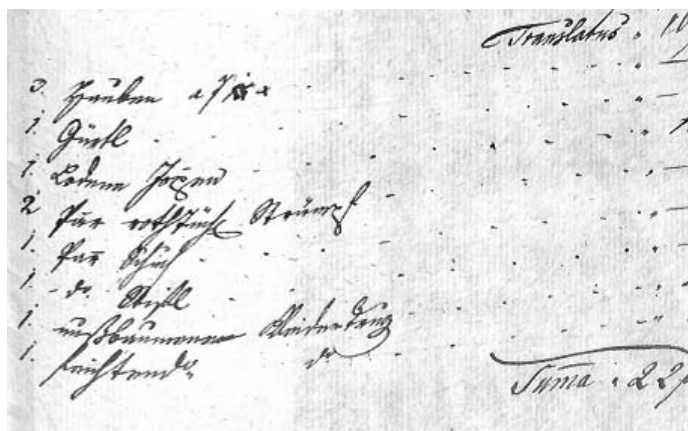 Translatus
3. Hauben a 7 x
1. Gürtl
1. Lodene Joppen
2 Par rothtüchl Strümpf
1. Par Schuh
1. do Stifl
1. nußbaumener Kleiderkasten
1. feichtend. do
Suma 22